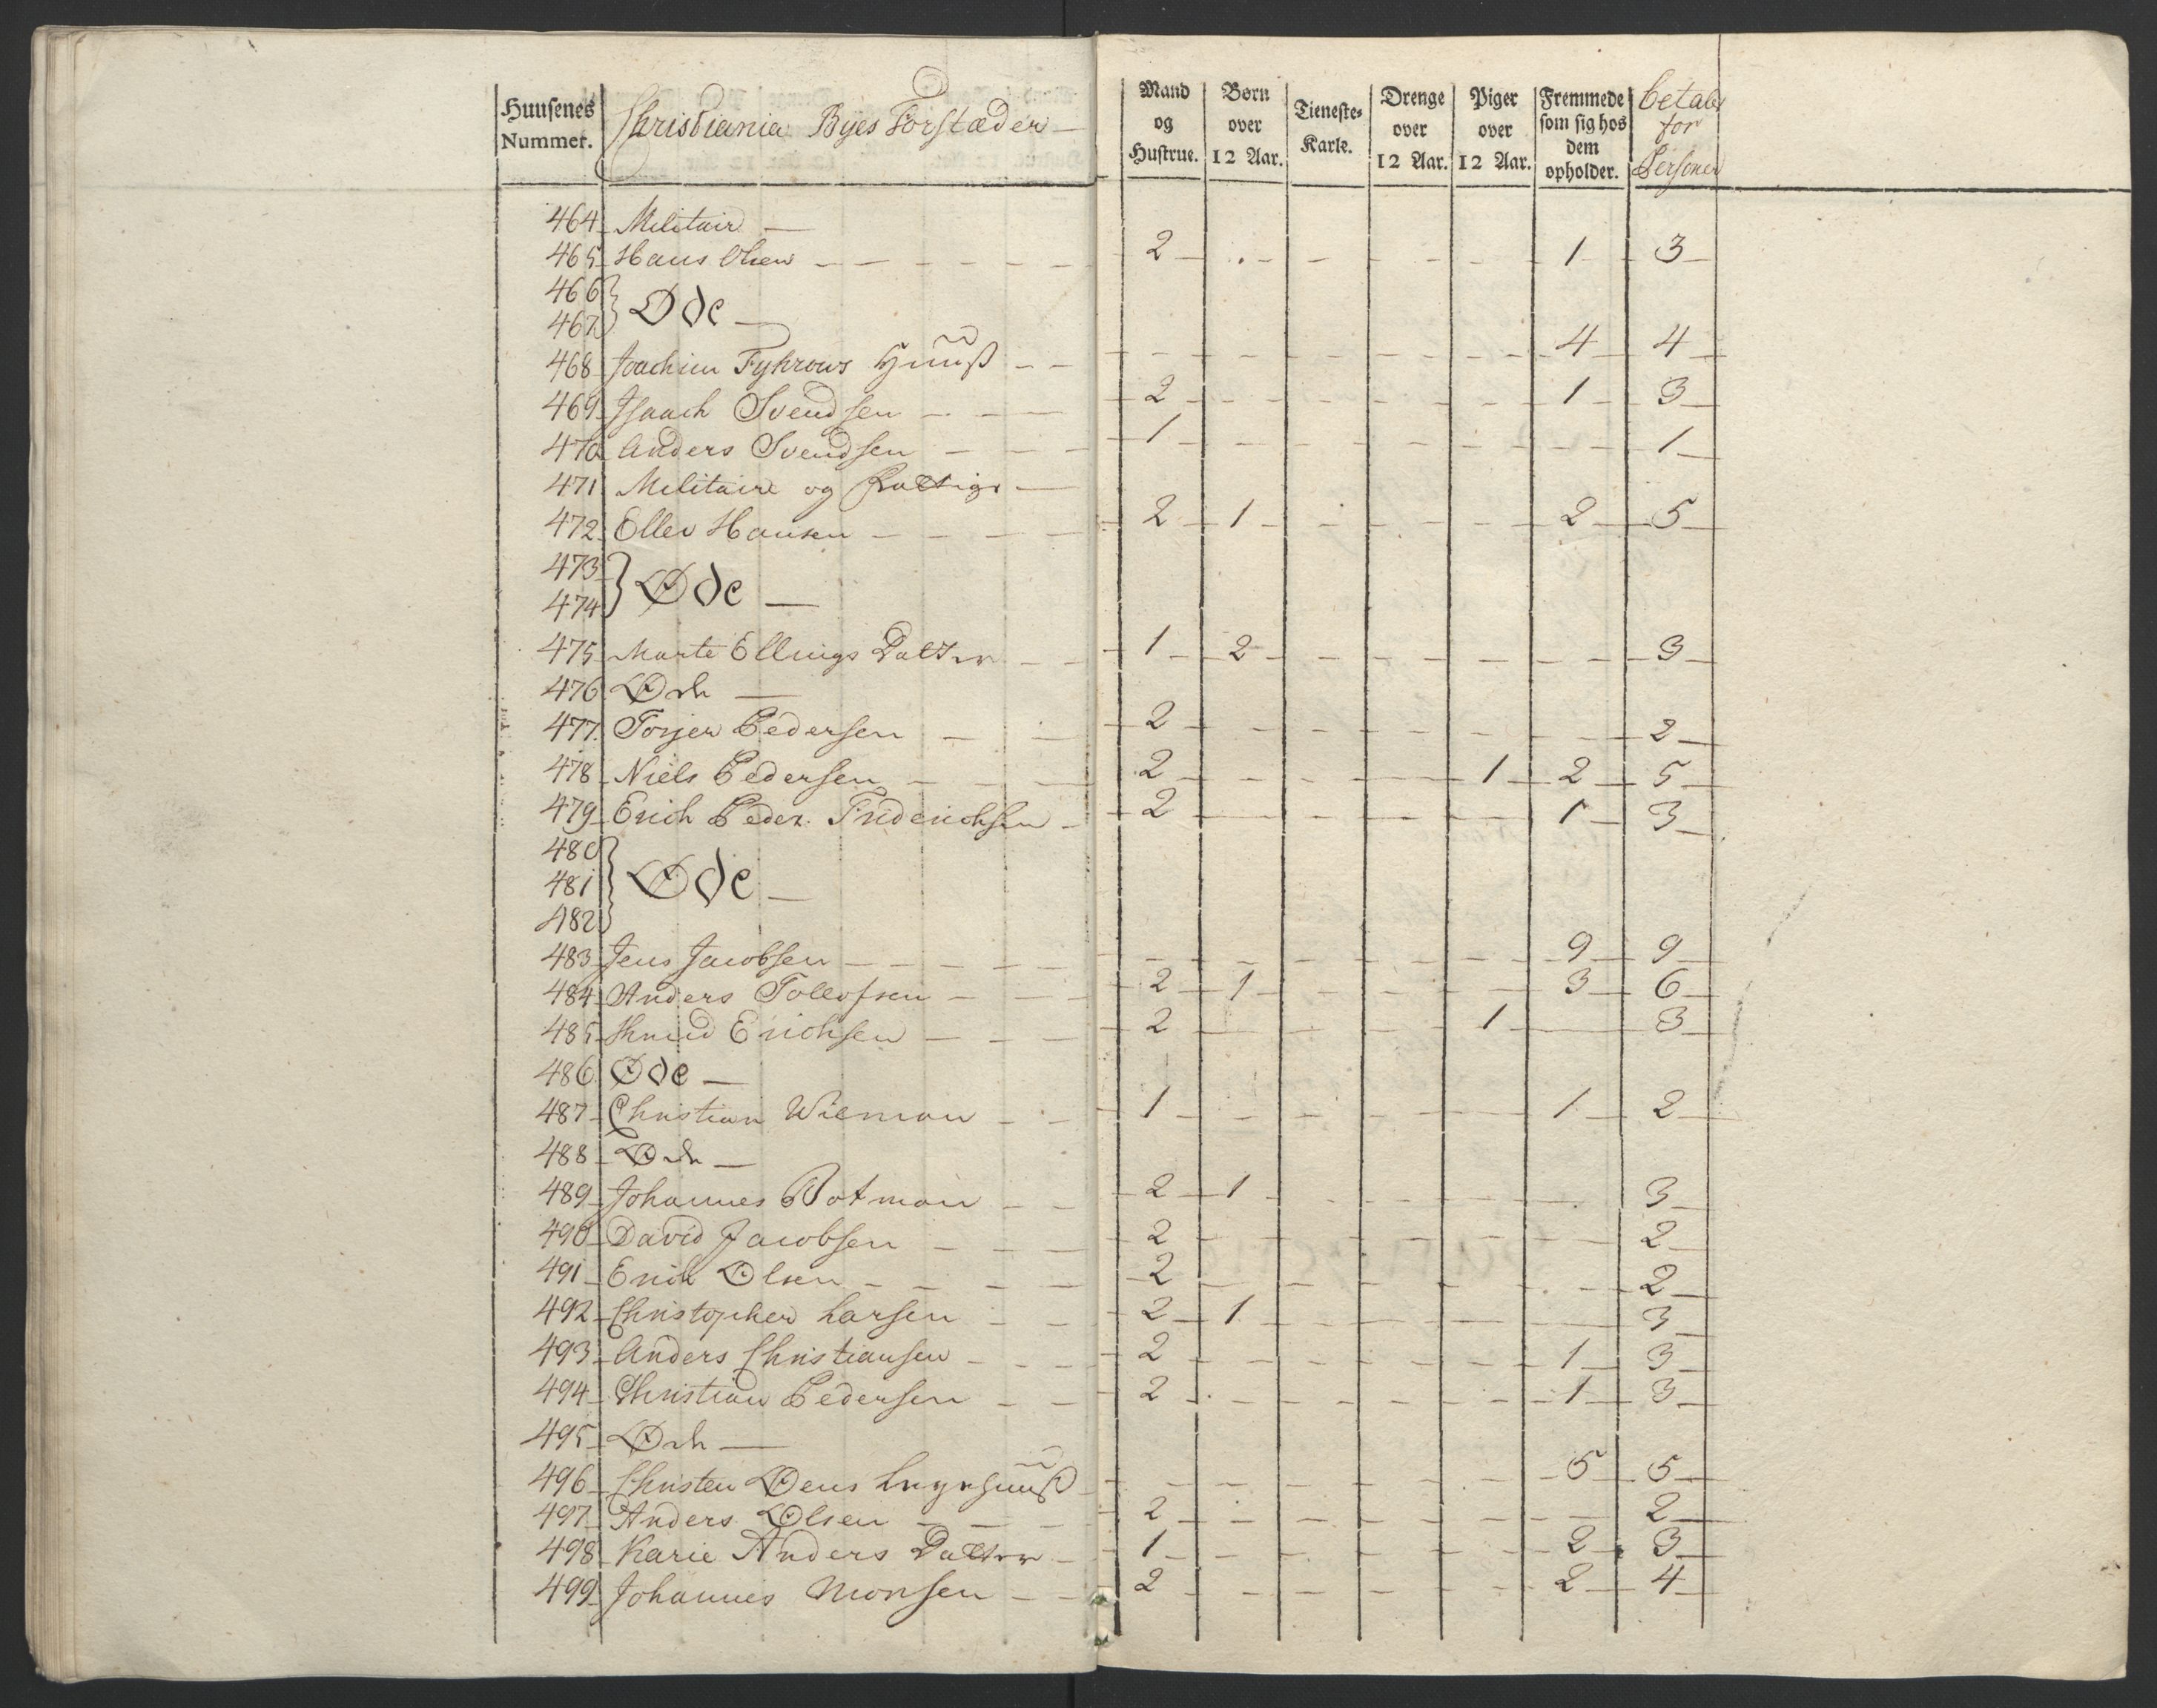 Huusenes Nummer. Christiania Byes Forstæder — Mand og Hustrue. Børn over 12 Aar. Tieneste-Karle. Drenge over 12 Aar. Piger over 12 Aar. Fremmede som sig hos dem opholder. betaler for Personer
464 Militair —
465 Hans Olsen 2 1 3
466 } Øde —
467
468 Joachim Fyhrows Huuß 4 4
469 Isaach Svendsen 2 1 3
470 Anders Svendsen 1 1
471 Militaire og fattige —
472 Ellev Hansen 2 1 2 5
473 } Øde —
474
475 Marte Ellings Datter 1 2 3
476 Øde —
477 Torjer Pedersen 2 2
478 Niels Pedersen 2 1 2 5
479 Erich Peder Friderichsen 2 1 3
480 } Øde —
481
482
483 Jens Jacobsen 9 9
484 Anders Tollofsen 2 1 3 6
485 Knud Erichsen 2 1 3
486 Øde —
487 Christian Wieman 1 1 2
488 Øde —
489 Johannes Botman 2 1 3
490 David Jacobsen 2 2
491 Erich Olsen 2 2
492 Christopher Larsen 2 1 3
493 Anders Christiansen 2 1 3
494 Christian Pedersen 2 1 3
495 Øde —
496 Christen Øens 5 5
497 Anders Olsen 2 2
498 Karie Anders Datter 1 2 3
499 Johannes Monsen 2 2 4